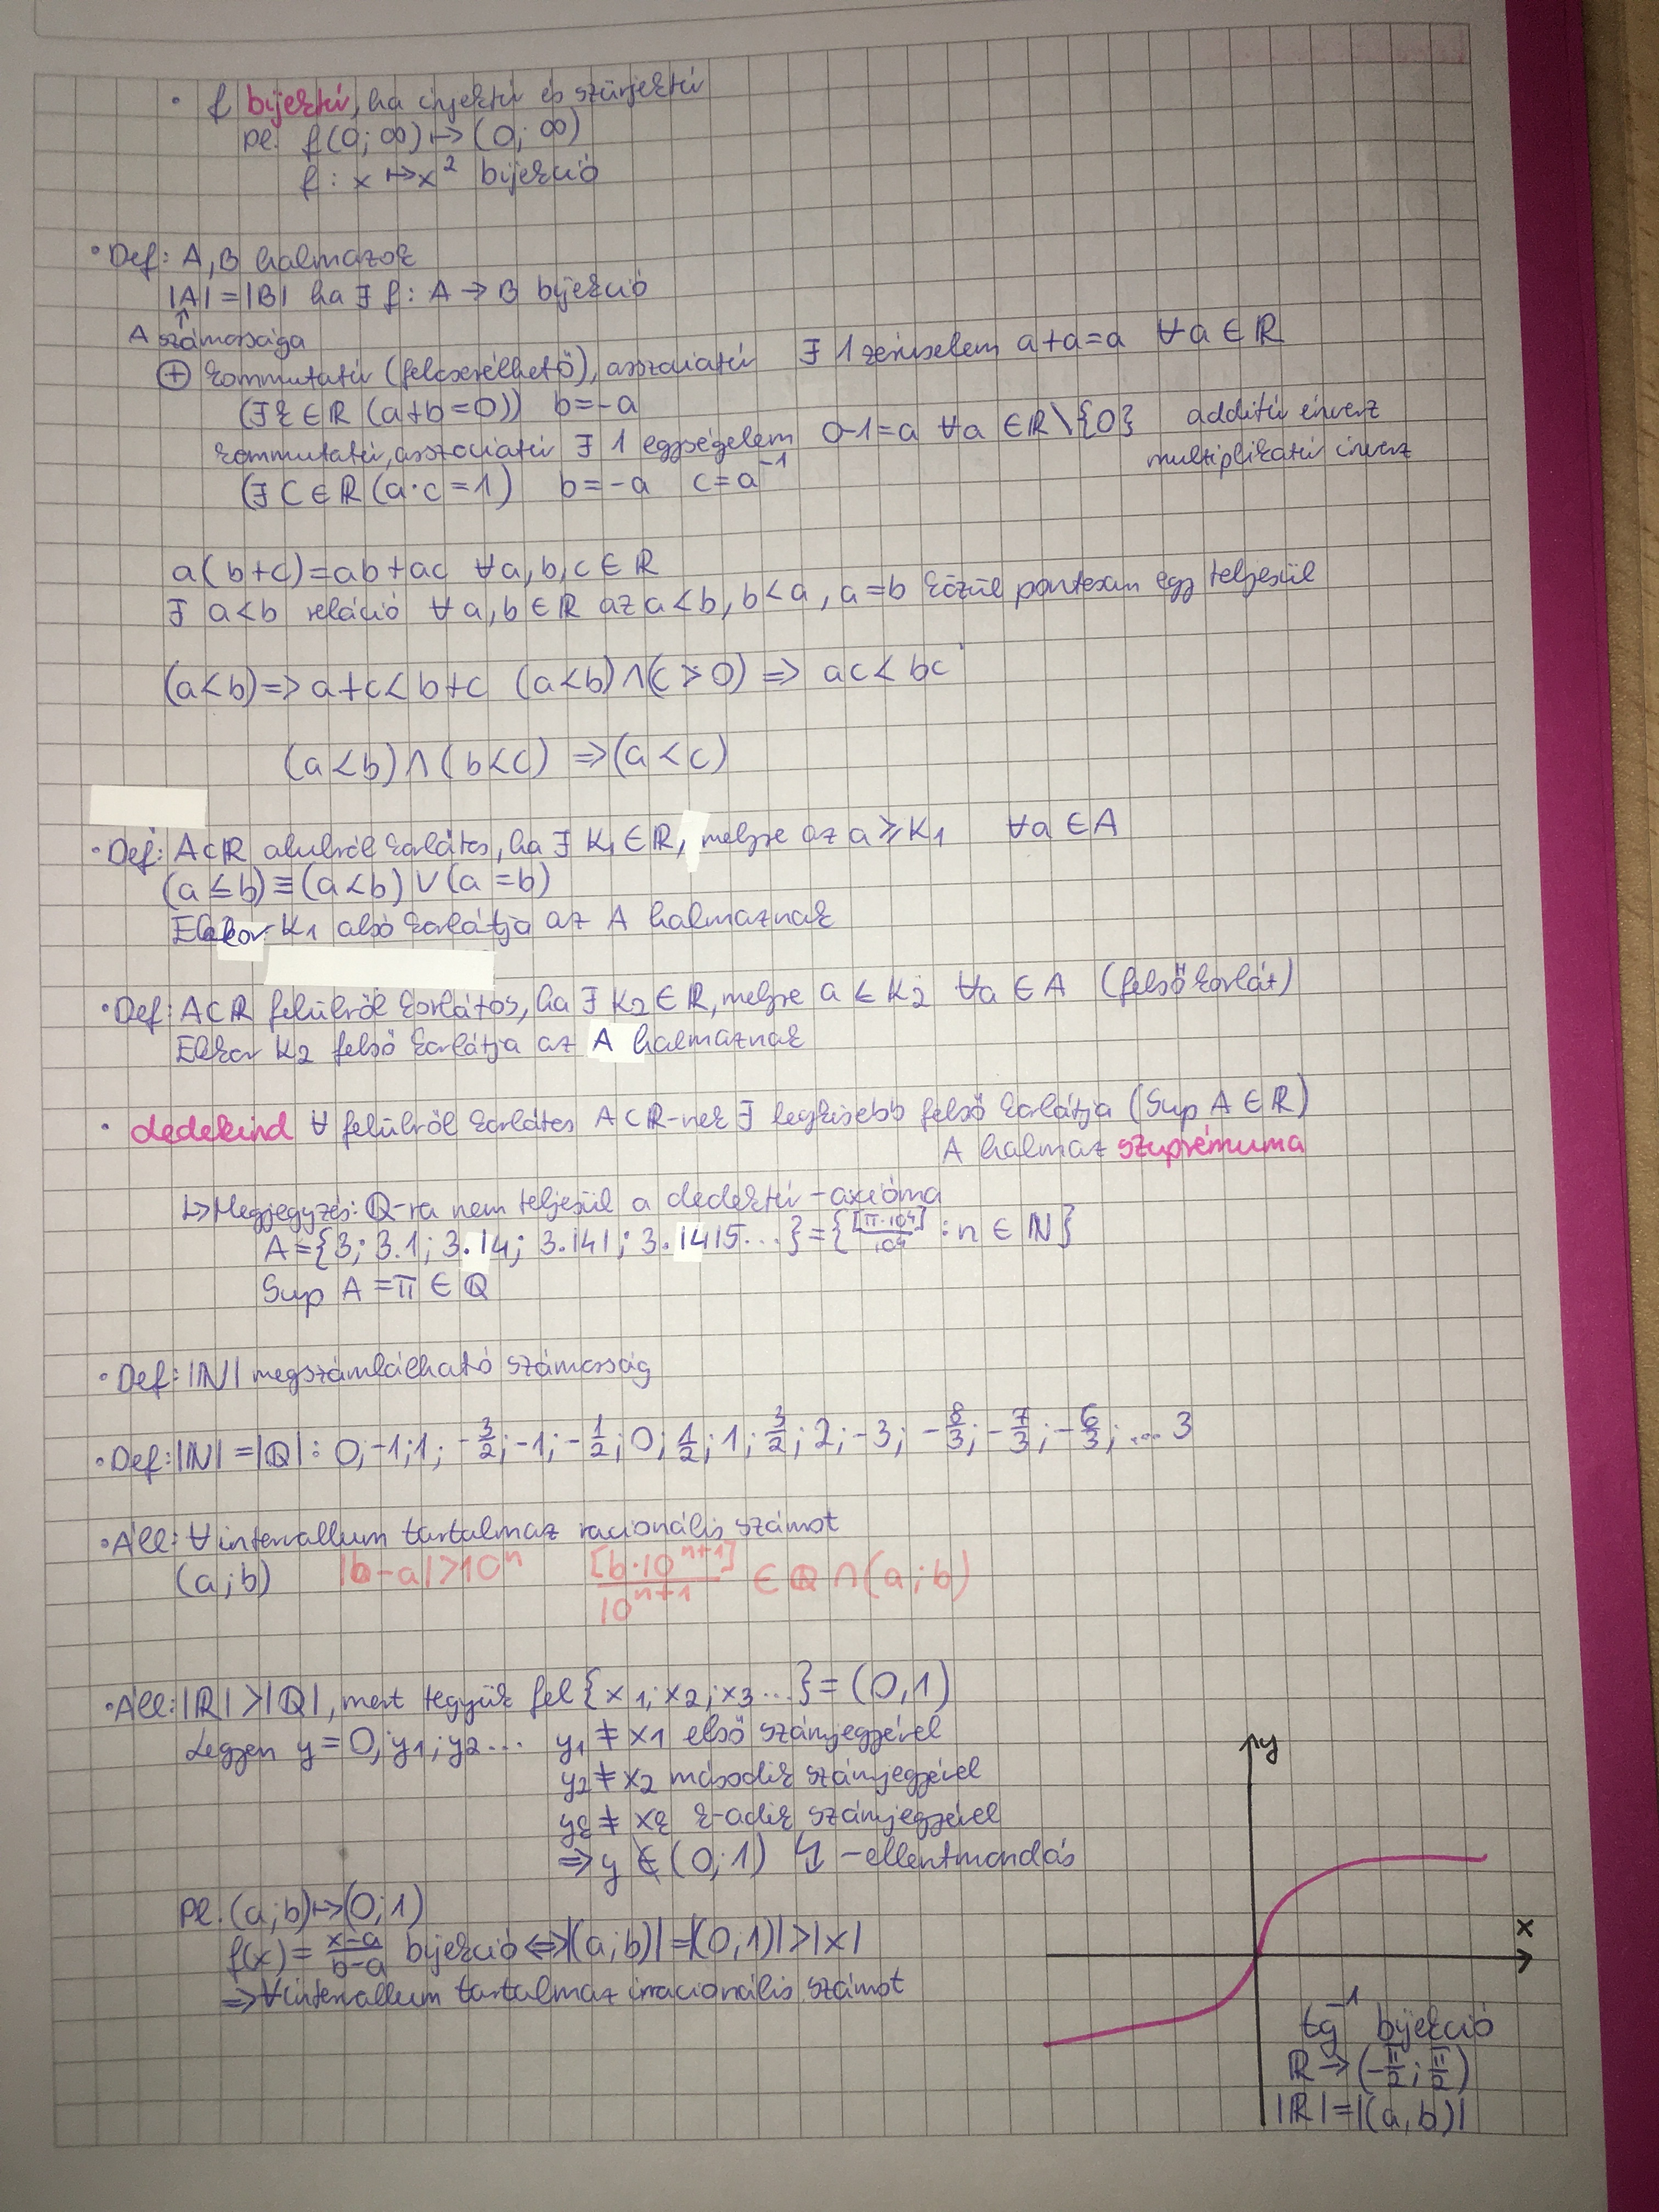 • f bijektív, ha injektív és szürjektív
pl. f(0; ∞) ↦ (0; ∞)
f: x ↦ x² bijekció
• Def: A, B halmazok
|A| = |B| ha ∃ f: A → B bijekció
↑
A számossága
⊕ kommutatív (felcserélhető), asszociatív ∃ 1 zéruselem a+a=a ∀a ∈ ℝ
(∃ ξ ∈ ℝ (a+b=0)) b=-a
kommutatív, asszociatív ∃ 1 egységelem 0-1=a ∀a ∈ ℝ\{0} additív inverz
(∃ C ∈ ℝ (a·c=1) b=-a c=a⁻¹ multiplikatív inverz
a(b+c)=ab+ac ∀a,b,c ∈ ℝ
∃ a<b reláció ∀a,b ∈ ℝ az a<b, b<a, a=b közül pontosan egy teljesül
(a<b) => a+c<b+c (a<b)∧(c>0) => ac<bc
(a<b)∧(b<c) => (a<c)
• Def: A⊂ℝ alulról korlátos, ha ∃ K₁∈ℝ, melyre az a ≥ K₁ ∀a ∈ A
(a≤b)≡(a<b)∨(a=b)
Ekkor K₁ alsó korlátja az A halmaznak
• Def: A⊂ℝ felülről korlátos, ha ∃ K₂∈ℝ, melyre a ≤ K₂ ∀a ∈ A (felső korlát)
Ekkor K₂ felső korlátja az A halmaznak
• dedekind ∀ felülről korlátos A⊂ℝ-nek ∃ legkisebb felső korlátja (Sup A ∈ ℝ)
A halmaz szuprémuma
↳ Megjegyzés: ℚ-ra nem teljesül a dedektív-axióma
A={3; 3.1; 3.14; 3.141; 3.1415...}={[π·10⁴]/10⁴ : n ∈ ℕ}
Sup A = π ∈ ℚ
• Def: |ℕ| megszámlálható számosság
• Def: |ℕ|=|ℚ|: 0; -1; 1; -3/2; -1; -1/2; 0; 1/2; 1; 3/2; 2; -3; -8/3; -7/3; -6/3; ... 3
• Áll: ∀ intervallum tartalmaz racionális számot
(a;b) |b-a|>10ⁿ [b·10ⁿ⁺¹]/10ⁿ⁺¹ ∈ ℚ∩(a;b)
• Áll: |ℝ|>|ℚ|, mert tegyük fel {x₁; x₂; x₃...}=(0,1)
Legyen y=0, y₁; y₂... y₁ ≠ x₁ első számjegyével
y₂ ≠ x₂ második számjegyével
yₖ ≠ xₖ k-adik számjegyével
=> y ∉ (0;1) ↯ -ellentmondás
pl. (a;b) ↦ (0;1)
f(x)= x-a/b-a bijekció <=> |(a;b)|=|(0;1)|>|x|
=> ∀ intervallum tartalmaz irracionális számot
y
x
tg⁻¹ bijekció
ℝ → (-π/2; π/2)
|ℝ|=|(a,b)|